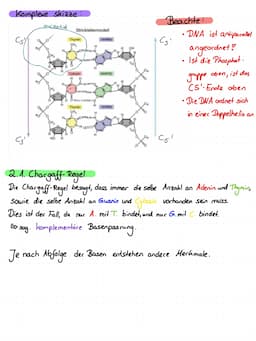 Komplexe Skizze
Beachte!
C5'
C3'
• DNA ist antiparallel
angeordnet?
• Ist die Phosphat-
gruppe oben, ist das
C5'-Ende oben
• Die DNA ordnet sich
in einer Doppelhelix an
C3'
C5'
2.1. Chargaff-Regel
Die Chargaff-Regel besagt, dass immer die selbe Anzahl an Adenin und Thymin,
sowie die selbe Anzahl an Guanin und Cytosin vorhanden sein muss.
Dies ist der Fall, da nur A. mit T. bindet, und nur G. mit C. bindet.
sog. komplementäre Basenpaarung.
Je nach Abfolge der Basen entstehen andere Merkmale.